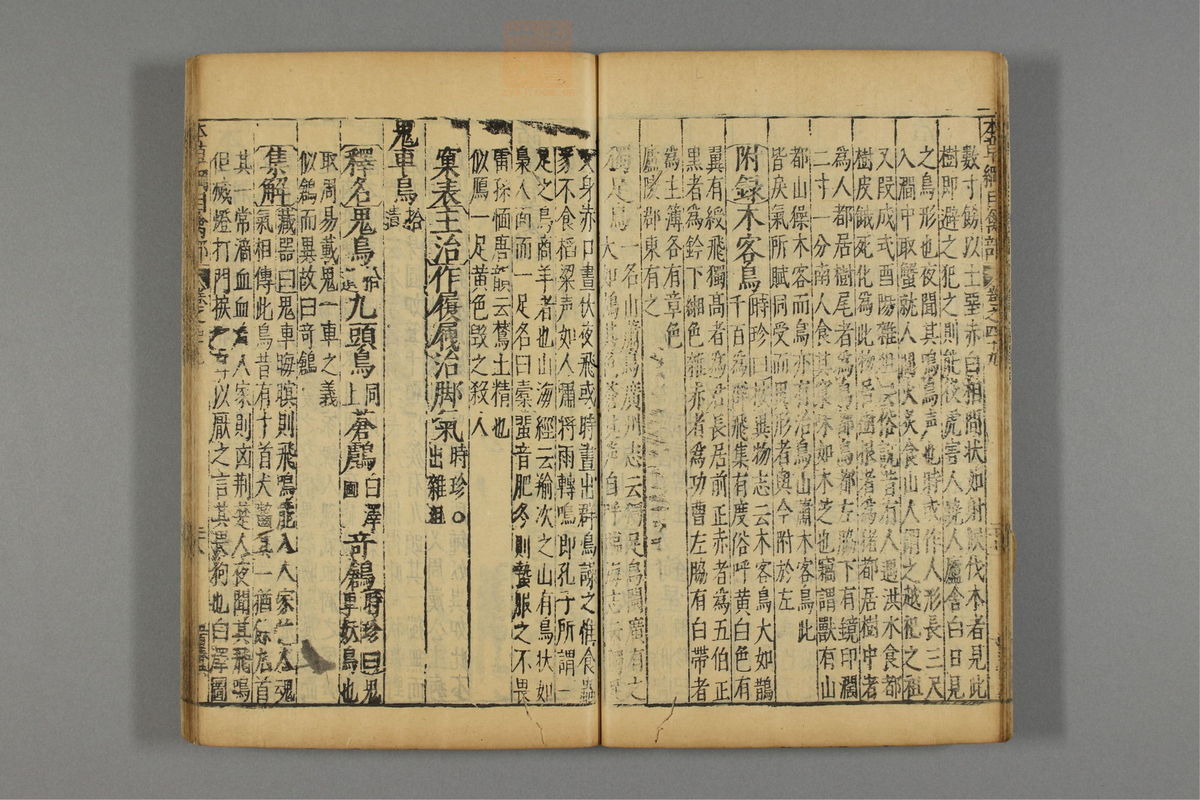 數寸餘以土堊赤白相間狀如射侯伐木者見此
樹即避之犯之則能役虎害人燒人廬舍白日見
之鳥形也夜聞其鳴鳥聲也時或作人形長三尺
入澗中取蟹就人間火炙食山人謂之越祝之祖
又段成式酉陽雜俎云俗說昔有人遇洪水食都
樹皮餓死化爲此物
爲人都居樹尾者爲鳥都鳥都左脇下有鏡印濶
二寸一分南人食其窠味如木芝也竊謂獸有山
都山𤢖木客而鳥亦有治鳥山蕭木客鳥此
皆戾氣所賦同受而異形者與今附於左
附録木客鳥
時珍曰按異物志云木客鳥大如鵲
千百爲群飛集有度俗呼黄白色有
翼有綬飛獨高者爲君長居前正赤者爲五伯正
黒者爲鈐下緗色雜赤者爲功曹左脇有白帶者
爲主簿各有章色
廬陵郡東有之
獨足鳥一名山蕭鳥廣州志云獨足鳥閩廣有之
大如鵠其色蒼其聲自呼臨海志云獨足
文身赤口晝伏夜飛或時晝出群鳥譟之惟食蟲
豸不食稻粱声如人嘯将雨轉鳴即孔子所謂一
足之鳥商羊者也山海經云羭次之山有鳥狀如
梟人面而一足名曰橐蜚音肥冬則蟄服之不畏
雷孫愐唐韻云鵚土精也
似鴈一足黄色毁之殺人
窠表主治作履屧治脚氣
時珍○
出雜俎
鬼車鳥拾遺
釋名鬼鳥拾遺九頭鳥同上蒼鸆白澤圖竒鶬時珍曰鬼車妖鳥也
取周易載鬼一車之義
似鶬而異故曰竒鶬
集解藏器曰鬼車晦暝則飛鳴能入人家收人魂
氣相傳此鳥昔有十首犬齧其一猶餘九首
其一常滴血血着人家則凶荆楚人夜聞其飛鳴
但滅燈打門捩狗耳以厭之言其畏狗也白澤圖